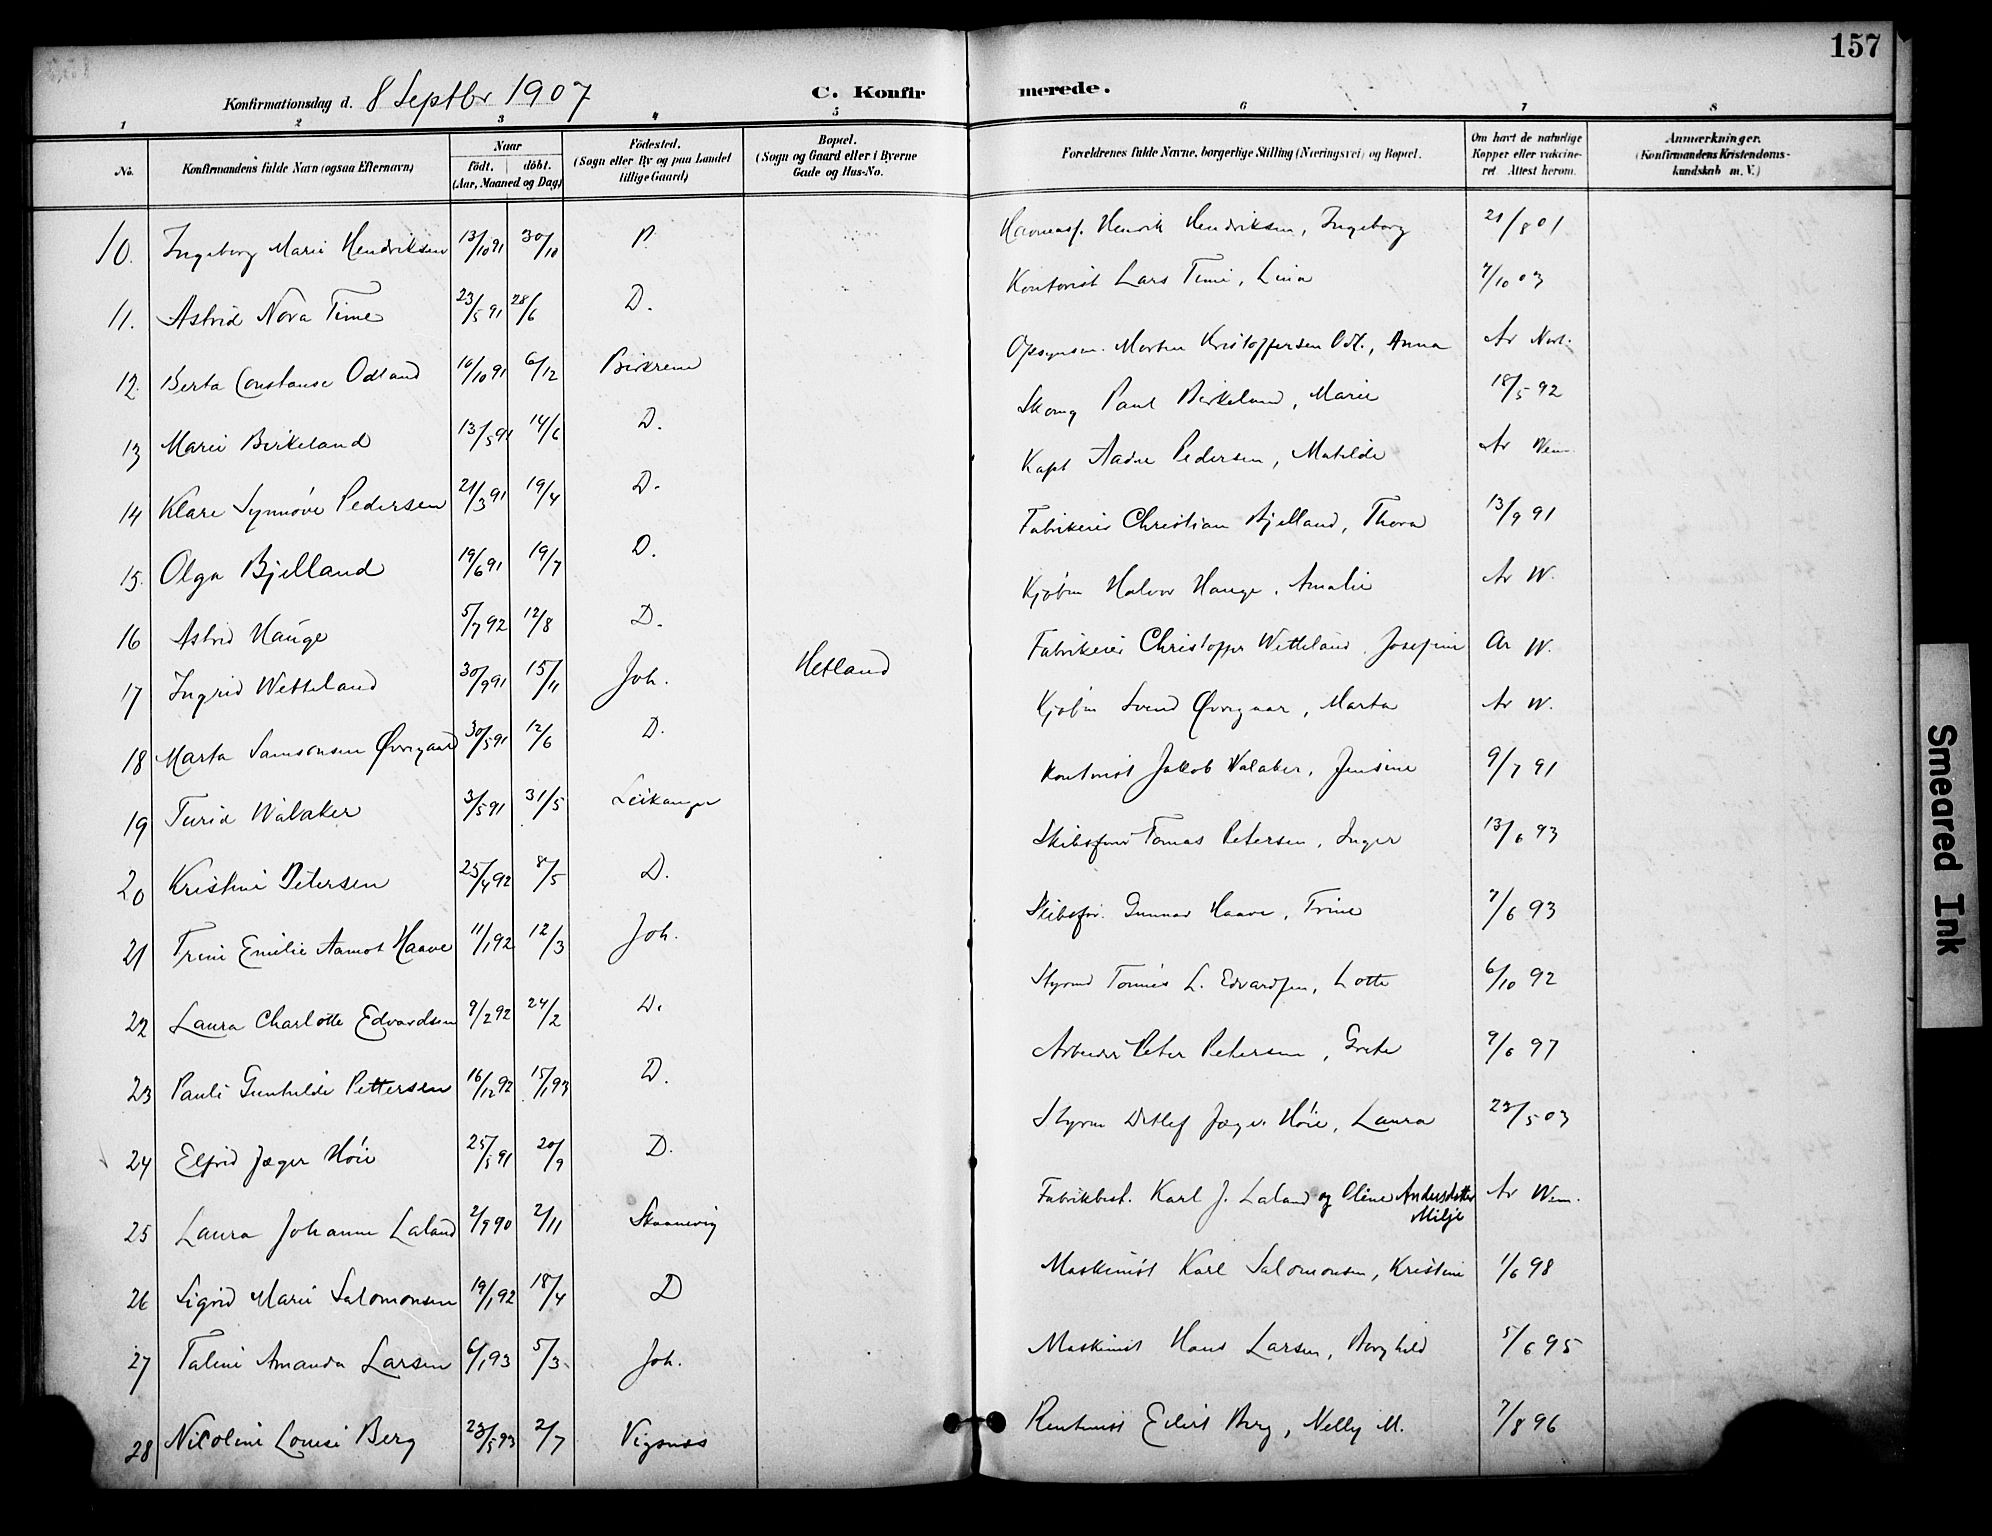 157
Konfirmationsdag d. 8 Septbr 1907
C. Konfirmerede.
1 2 3 4 5 6 7 8
No.
Konfirmandens fulde Navn (ogsaa Efternavn)
Naar
födt. döbt.
(Aar, Maaned og Dag)
Födested.
(Sogn eller By og paa Landet
tillige Gaard)
Bopæl.
(Sogn og Gaard eller i Byerne
Gade og Hus-No.
Forældrenes fulde Navne, borgerlige Stilling (Næringsvei) og Bopæl.
Om havt de naturlige
Kopper eller vakcine-
ret. Attest herom.
Anmærkninger.
(Konfirmandens Kristendoms-
kundskab m. V.)
10. Ingeborg Marie Hendriksen 13/10 91 30/10 Henrik Hendriksen, Ingeborg 21/8 01
11. Astrid Nora Time 23/5 91 28/6 D. Kontorist Lars Time, Lina 7/10 03
12. Berta Constanse Odland 10/10 91 6/12 Birkrem Opsynsm. Morten Kristoffersen Odl., Anna Ar
13 Marie Birkeland 13/5 91 14/6 D. Skomg Paul Birkeland, Marie 18/5 92
14 Klare Synnøve Pedersen 21/3 91 19/4 D. Kapt Aadne Pedersen, Matilde Ar Wem.
15. Olga Bjelland 19/6 91 19/7 D. Fabrikeier Christian Bjelland, Thora 13/9 91
16 Astrid Hauge 5/7 92 12/8 D. Kjøbm Halvor Hauge, Amalie Ar W.
17 Ingrid Wetteland 30/9 91 15/11 Joh. Hetland Fabrikeier Christoffer Wetteland, Josefine Ar W.
18 Marta Samsonsen Øvregaard 30/5 91 12/6 D. Kjøbm Svend Øvregaar, Marta Ar W.
19 Turid Walaker 3/5 91 31/5 Leikanger Kontorist Jakob Walaker, Jensine 9/7 91
20 Kristine Petersen 25/4 92 8/5 D. Skibsfører Tomas Petersen, Inger 13/6 93
21 Trine Emilie Aamot Haave 11/1 92 12/3 Joh. Skibsfør. Gunnar Haave, Trine 7/6 93
22 Laura Charlotte Edvardsen 9/2 92 24/2 D. Styrmd Tønnes L. Edvardsen, Lotte 6/10 92
23 Pauli Gunhilde Pettersen 16/12 92 15/1 93 D. Arbeider Peter Petersen, Grete 9/6 97
24 Elfrid Jæger Høie 25/5 91 20/9 D. Styrm Detlef Jæger Høie, Laura 23/5 03
25 Laura Johanne Laland 2/9 90 2/11 Skaanevig Fabrikbest. Karl J. Laland og Oline Andersdotter Ar Wem.
Milje
26 Sigrid Marie Salomonsen 19/1 92 18/4 D Maskinist Karl Salomonsen, Kristine 1/6 98
27 Taline Amanda Larsen 6/1 93 5/3 Joh. Maskinist Hans Larsen, Borghild 5/6 95
28 Nicoline Louise Berg 23/5 93 2/7 Vigsnes Rentenist Eilert Berg, Nelly M. 7/8 96
Smeared Ink